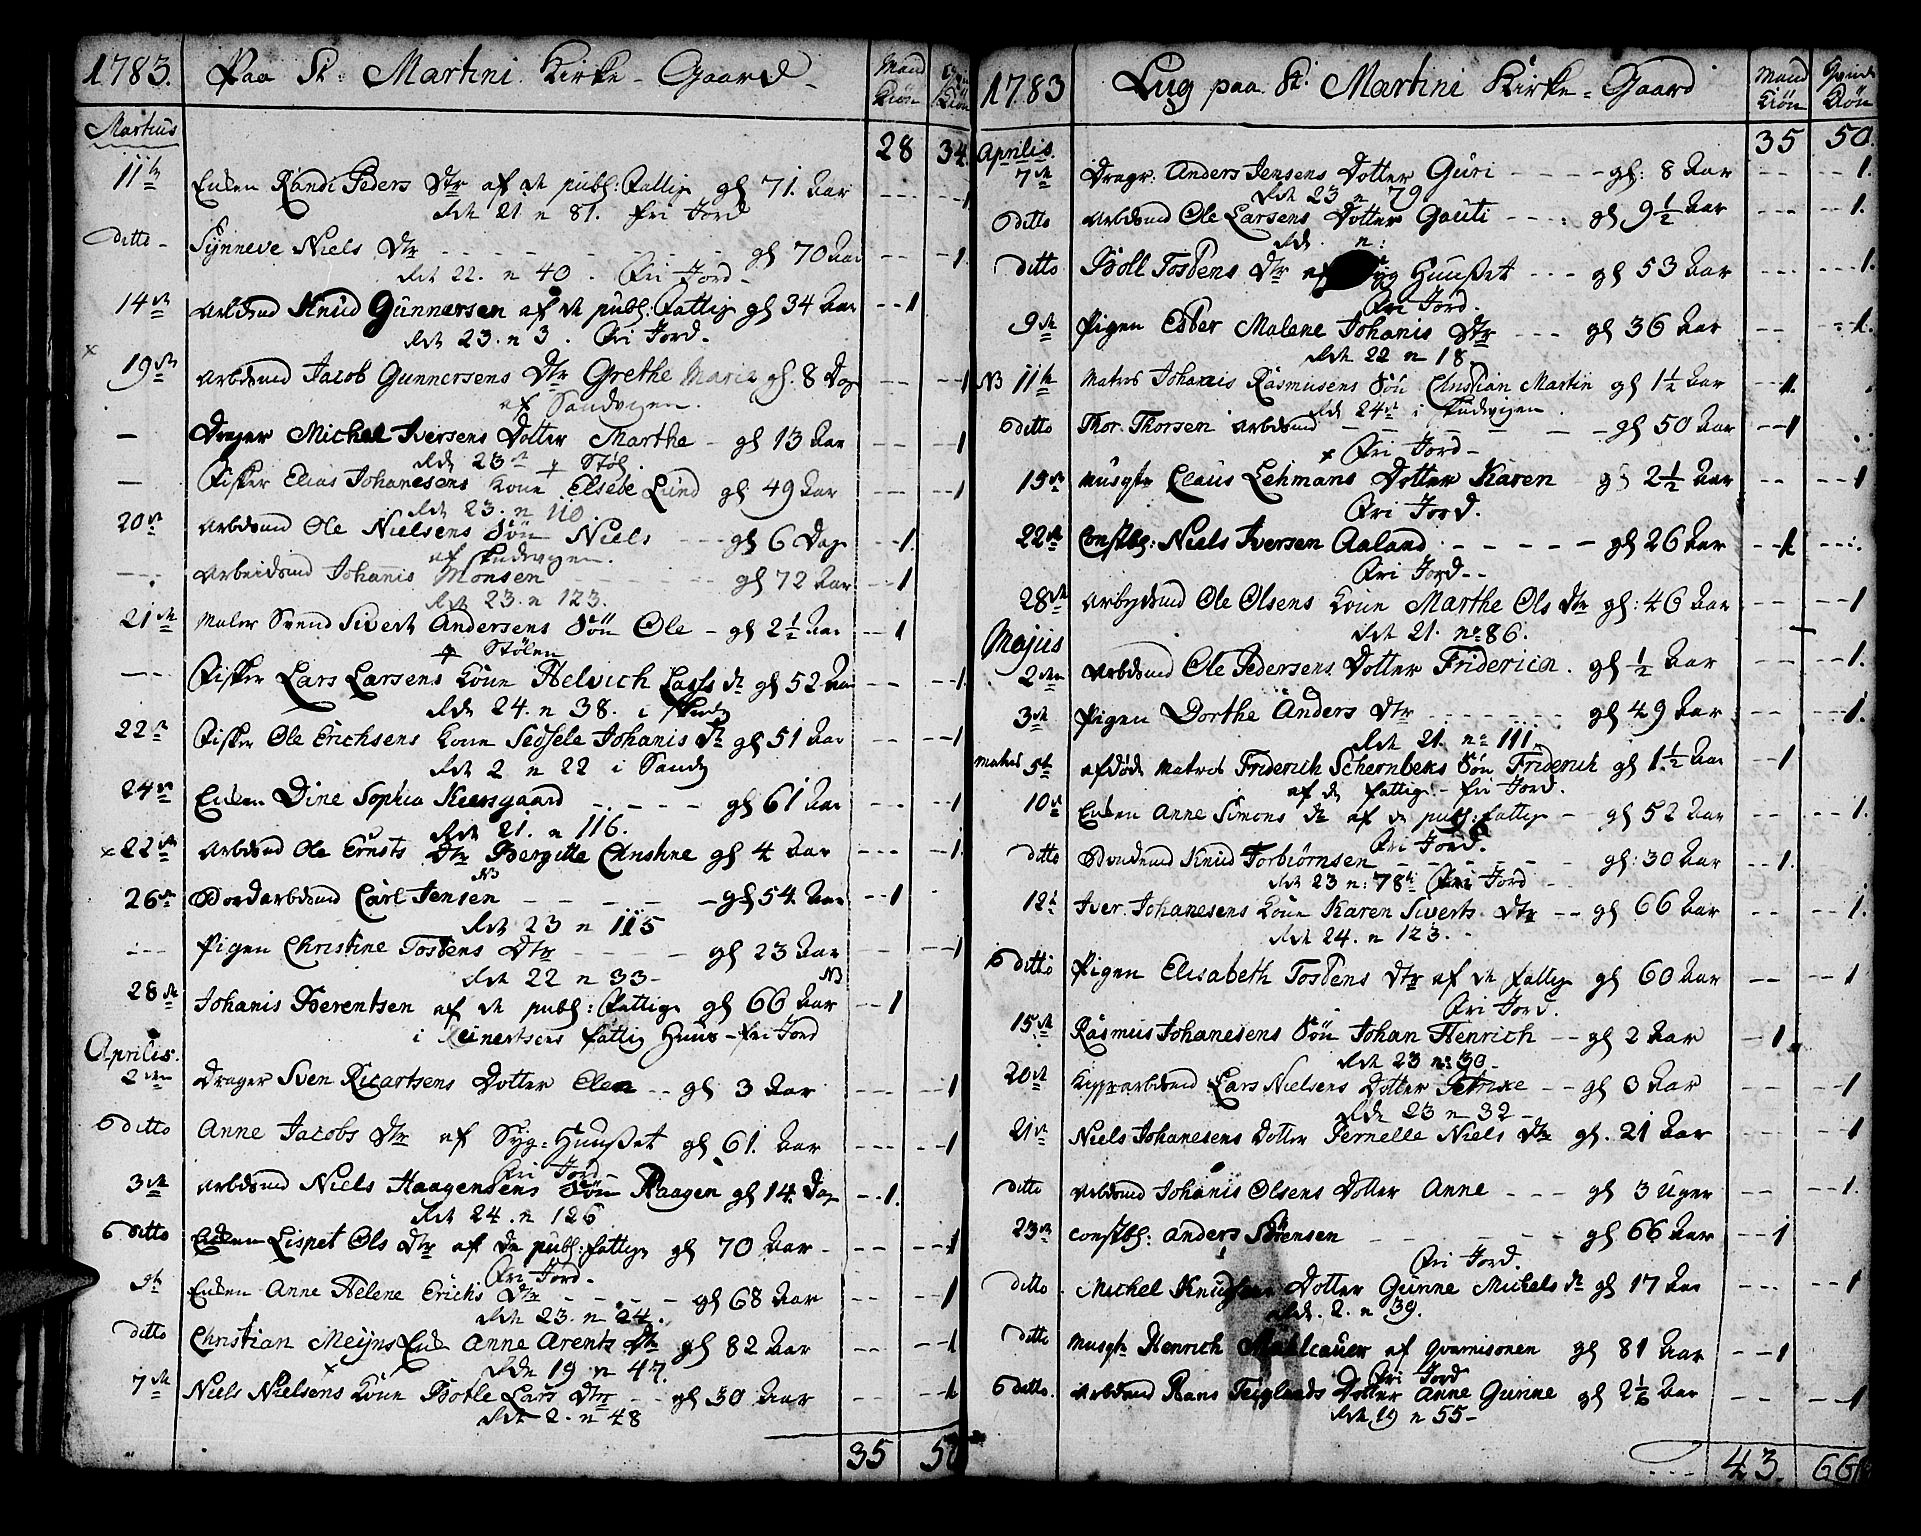 1783. Paa St: Martini Kirke-Gaard - Mand Kiön Kiön
Martius 28 34
11te Enken Randi Peders Dtr af de publ: Fattig gl 71. Aar -- -1
Rde 21 n 81. fri Jord
Ditto - Synneve Niels Dtr - - - gl 70 Aar -- -1.
Rde 22. n 40. Fri Jord -
14de Arbdsmd Knud Gunnersen af de publ: Fattig gl 34 Aar --1
Rde 23. n 3. Fri Jord -
19de Arbdsmd Jacob Gunnersens Dtr Grethe Maria gl. 8 Dag -- -1
af Sandvigen.
— Drager Michel Iversens Dotter Marthe - gl 13 Aar -- -1
Rde 23de Stöl.
— Fisker Elias Johanesens Kone Elsebe Lund gl 49 Aar -- -1
Rde 23. n 110.
20de Arbdsmd Ole Nielsens Sön Niels -- gl 6 Dag --1.
af Skudevigen.
— Arbeidsmd Johanis Monsen - - gl 72 Aar --1
Rde 23. n 123.
21de Maler Svend Sivert Andersens Sön Ole - gl 2½ Aar --1
Stölen
— Fisker Lars Larsens Kone Helvich Lasses dr gl 52 Aar -- -1.
Rde 24. n 38. i Skudv
22de Fisker Ole Erichsens Kone Sedsele Johanis dr gl 51 Aar -- -1
Rde 2 n 22 i Sandv
24de Enken Dine Sophia Keersgaard - - - - gl 61 Aar -- -1
Rde 21. n 116.
x 22de Arbdsmd Ole Ernsts Dtr Bergitte Christine gl 4 Aar --- -1.
NB
26de Bordarbdsmd Carl Jensen - - - - gl 54 Aar --1
Rde 23 n 115
--- Pigen Christine Tostens Dtr - - - gl 23 Aar -- -1
Rde 22 n 33 - NB
28de Johanis Berentsen af de publ: Fattige gl 66 Aar --1
i Reinertsens fattig Huus - Fri Jord
Aprilis.
2den Drager Sven Ricartsens Dotter Elen -- gl 3 Aar --- -1
Ditto Anne Jacobs Dtr af Syg: Huuset gl 61. Aar --- -1
Fri Jord -
3de Arbdsmd Niels Haagensens Sön Haagen gl 14 Dag -.1.
Rde 24. n 126
Ditto Enken Lispet Ols Dtr af de publ: fattige gl 70 Aar - -- -1
Fri Jord -
5te Enken Anne Helene Erichs Dtr - - - - gl 68 Aar -- -1
Rde 23. n 24.
Ditto Christian Meijns Enke Anne Arents Dtr gl 82 Aar --- -1
Rde 19 n 47.
7de Niels Nielsens Kone Botle Lars Dtr -- gl 30 Aar -- -1
Rde 2. n 48
35 50
1783 Lug paa St: Martini Kirke-Gaard Mand Kiön Qvinde Kiön
Aprilis. 35 50.
7de Dragr. Anders Jensens Dotter Guri - - - - gl: 8 Aar --- -1.
Rde 23 n 79
Ditto Arbdsmd Ole Larsens Dotter Gauti - - -: gl 9½ Aar --- -1.
Rde. n:
Ditto Boll Tostens Dtr af Syg Huuset --- gl 53 Aar -- -1.
Fri Jord.
9de Pigen Ester Malene Johanis Dtr --- gl 36 Aar -- -1.
Rde 22 n 18.
NB 11te Matros Johanis Rasmusens Sön Christian Martin gl 1½ Aar --1.
Rde 24de i Skudvigen.
Ditto Thor Thorsen Arbdsmd - - - - gl 50 Aar --1
x Fri Jord -
15de Musqtr Claus Lehmans Dotter Karen gl 2½ Aar -- --1
Fri Jord.
22de Constbl: Niels Iversen Aaland. - - - - gl 26 Aar --1 --.
Fri Jord--
28de Arbeydsmd Ole Olsens Kone Marthe Ols Dtr gl: 46 Aar -- --1
Rde 21. no 86.
Majus
2den Arbdsmd Ole Pedersens Dotter Friderica. gl ½ Aar -- --1.
3de Pigen Dorthe Anders Dtr - - - - gl 49 Aar -- --1.
Rde 21. no 111.
Matros 5te afdöde Matros Friderich Schernbeks Sön Friderich gl 1½ Aar --1
af de fattige - fri Jord.
10de Enken Anne Simons Dr af de publ: fattige - gl 52 Aar -- --1.
Fri Jord.
Ditto Bondemd Knud Torbiörnsen - - - - gl: 30 Aar --1.
Rde 23 n: 78 Fri Jord
12te Iver Johanesens Kone Karen Siverts Dtr -- gl 66 Aar -- --1.
Rde 24. n 123. -
Ditto Pigen Elisabeth Tostens Dtr af de fattige gl 60 Aar -- --1
Fri Jord.
15de Rasmus Johanesens Sön Johan Henrich -- gl 2 Aar --1.
Rde 23 no 30
20de Kipperarbdsmd Lars Nielsens Dotter Petrine -- gl 3 Aar -- --1
Rde 23 n 32 -
21de Niels Johanesens Dotter Pernelle Niels Dtr gl. 21 Aar -- --1
Ditto Arbdsmd Johanis Olsens Dotter Anne --- gl 3 Uger -- --1.
23de Constbl: Anders Sörensen - - - - gl 66 Aar --1
Fri Jord.
Ditto Michel Knudsens Dotter Gunne Michels dr gl 17 Aar --- --1
Rde. 2. n 39.
Ditto Musqtr Henrich af Gvarnisonen gl 81 Aar --1
Fri Jord
Ditto. Arbdsmd Hans Teiglands Dotter Anne Gunne gl 2½ Aar -- --1
Rde 19 n 55 -
43. 66